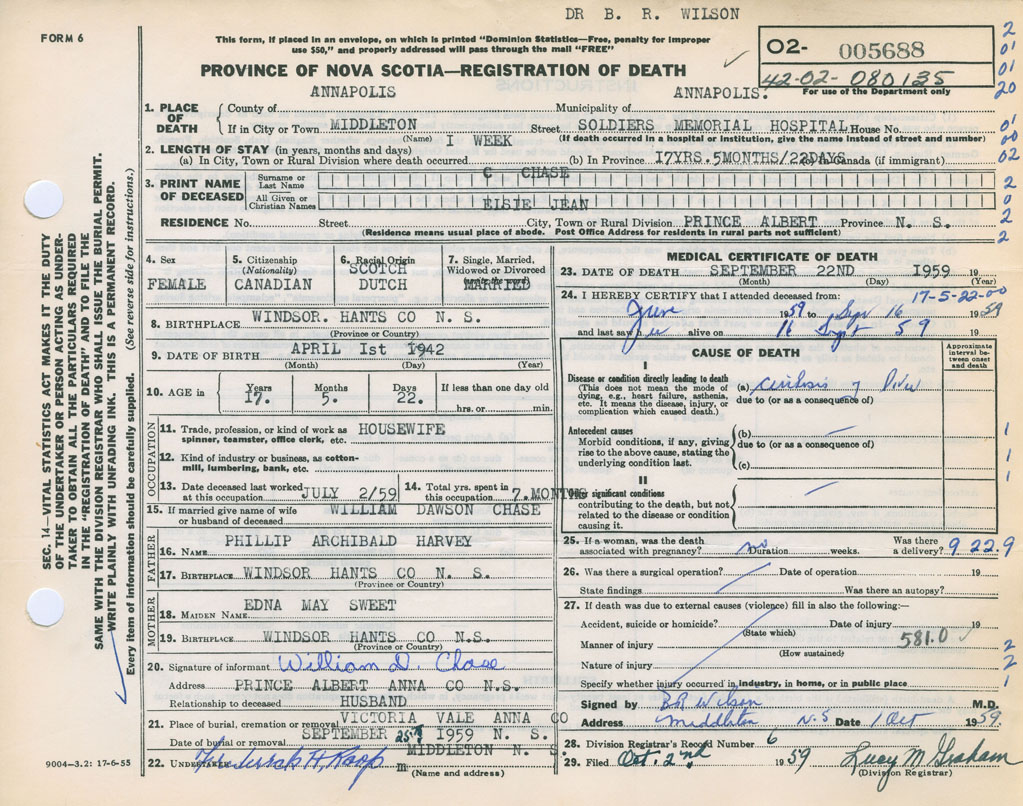 DR B. R. WILSON
FORM 6
This form, if placed in an envelope, on which is printed "Dominion Statistics—Free, penalty for improper use $50," and properly addressed will pass through the mail "FREE"
PROVINCE OF NOVA SCOTIA—REGISTRATION OF DEATH
O2- 005688
42-02-080135
For use of the Department only
2
01
01
20
SEC. 14—VITAL STATISTICS ACT MAKES IT THE DUTY OF THE UNDERTAKER OR PERSON ACTING AS UNDERTAKER TO OBTAIN ALL THE PARTICULARS REQUIRED IN THE "REGISTRATION OF DEATH" AND TO FILE THE SAME WITH THE DIVISION REGISTRAR WHO SHALL ISSUE THE BURIAL PERMIT.
WRITE PLAINLY WITH UNFADING INK. THIS IS A PERMANENT RECORD.
Every item of information should be carefully supplied. (See reverse side for instructions.)
1. PLACE OF DEATH
County of ANNAPOLIS Municipality of ANNAPOLIS.
If in City or Town MIDDLETON Street SOLDIERS MEMORIAL HOSPITAL House No.
(Name) (If death occurred in a hospital or institution, give name instead of street and number)
01
00
02
2. LENGTH OF STAY (in years, months and days)
(a) In City, Town or Rural Division where death occurred I WEEK (b) In Province 17YRS. 5MONTHS/22DAYS (c) In Canada (if immigrant)
3. PRINT NAME OF DECEASED
Surname or Last Name C CHASE
All Given or Christian Names ELSIE JEAN
2
0
2
2
RESIDENCE No. Street City, Town or Rural Division PRINCE ALBERT Province N. S.
(Residence means usual place of abode. Post Office Address for residents in rural parts not sufficient)
4. Sex FEMALE
5. Citizenship (Nationality) CANADIAN
6. Racial Origin SCOTCH DUTCH
7. Single, Married, Widowed or Divorced MARRIED
8. BIRTHPLACE WINDSOR. HANTS CO N. S.
(Province or Country)
9. DATE OF BIRTH APRIL Ist 1942
(Month) (Day) (Year)
10. AGE in Years 17. Months 5. Days 22. If less than one day old hrs. or min.
OCCUPATION
11. Trade, profession, or kind of work as spinner, teamster, office clerk, etc. HOUSEWIFE
12. Kind of industry or business, as cotton-mill, lumbering, bank, etc.
13. Date deceased last worked at this occupation JULY 2/59
14. Total yrs. spent in this occupation 7. MONTHS
15. If married give name of wife or husband of deceased WILLIAM DAWSON CHASE
FATHER
16. NAME PHILLIP ARCHIBALD HARVEY
17. BIRTHPLACE WINDSOR HANTS CO N. S.
(Province or Country)
MOTHER
18. MAIDEN NAME EDNA MAY SWEET
19. BIRTHPLACE WINDSOR HANTS CO N.S.
(Province or Country)
20. Signature of informant William D. Chase
Address PRINCE ALBERT ANNA CO N.S.
Relationship to deceased HUSBAND
21. Place of burial, cremation or removal VICTORIA VALE ANNA CO N. S.
Date of burial or removal SEPTEMBER 25th 1959
22. UNDERTAKER Frederick H. Roop MIDDLETON N. S.
(Name and address)
9004—3.2: 17-6-55
MEDICAL CERTIFICATE OF DEATH
23. DATE OF DEATH SEPTEMBER 22ND 1959 19
(Month) (Day) (Year)
24. I HEREBY CERTIFY that I attended deceased from: 17-5-22-00
June 1959 to Sept 16 1959
and last saw her alive on 16 Sept 59 19
CAUSE OF DEATH
Approximate interval between onset and death
I
Disease or condition directly leading to death
(This does not mean the mode of dying, e.g., heart failure, asthenia, etc. It means the disease, injury, or complication which caused death.)
(a) Cirrhosis of Liver
due to (or as a consequence of)
Antecedent causes
Morbid conditions, if any, giving rise to the above cause, stating the underlying condition last.
(b)
due to (or as a consequence of)
(c)
1
1
1
II
Other significant conditions
contributing to the death, but not related to the disease or condition causing it.
25. If a woman, was the death associated with pregnancy? no Duration weeks. Was there a delivery? 9 22.9
26. Was there a surgical operation? Date of operation 19
State findings Was there an autopsy?
27. If death was due to external causes (violence) fill in also the following:—
Accident, suicide or homicide? (State which) Date of injury 19
Manner of injury 581.0
(How sustained)
2
Nature of injury
2
Specify whether injury occurred in industry, in home, or in public place
1
Signed by B R Wilson M.D.
Address Middleton N.S Date 1 Oct 1959.
28. Division Registrar's Record Number 6
29. Filed Oct. 2nd 1959 Lucy M Graham
(Division Registrar)